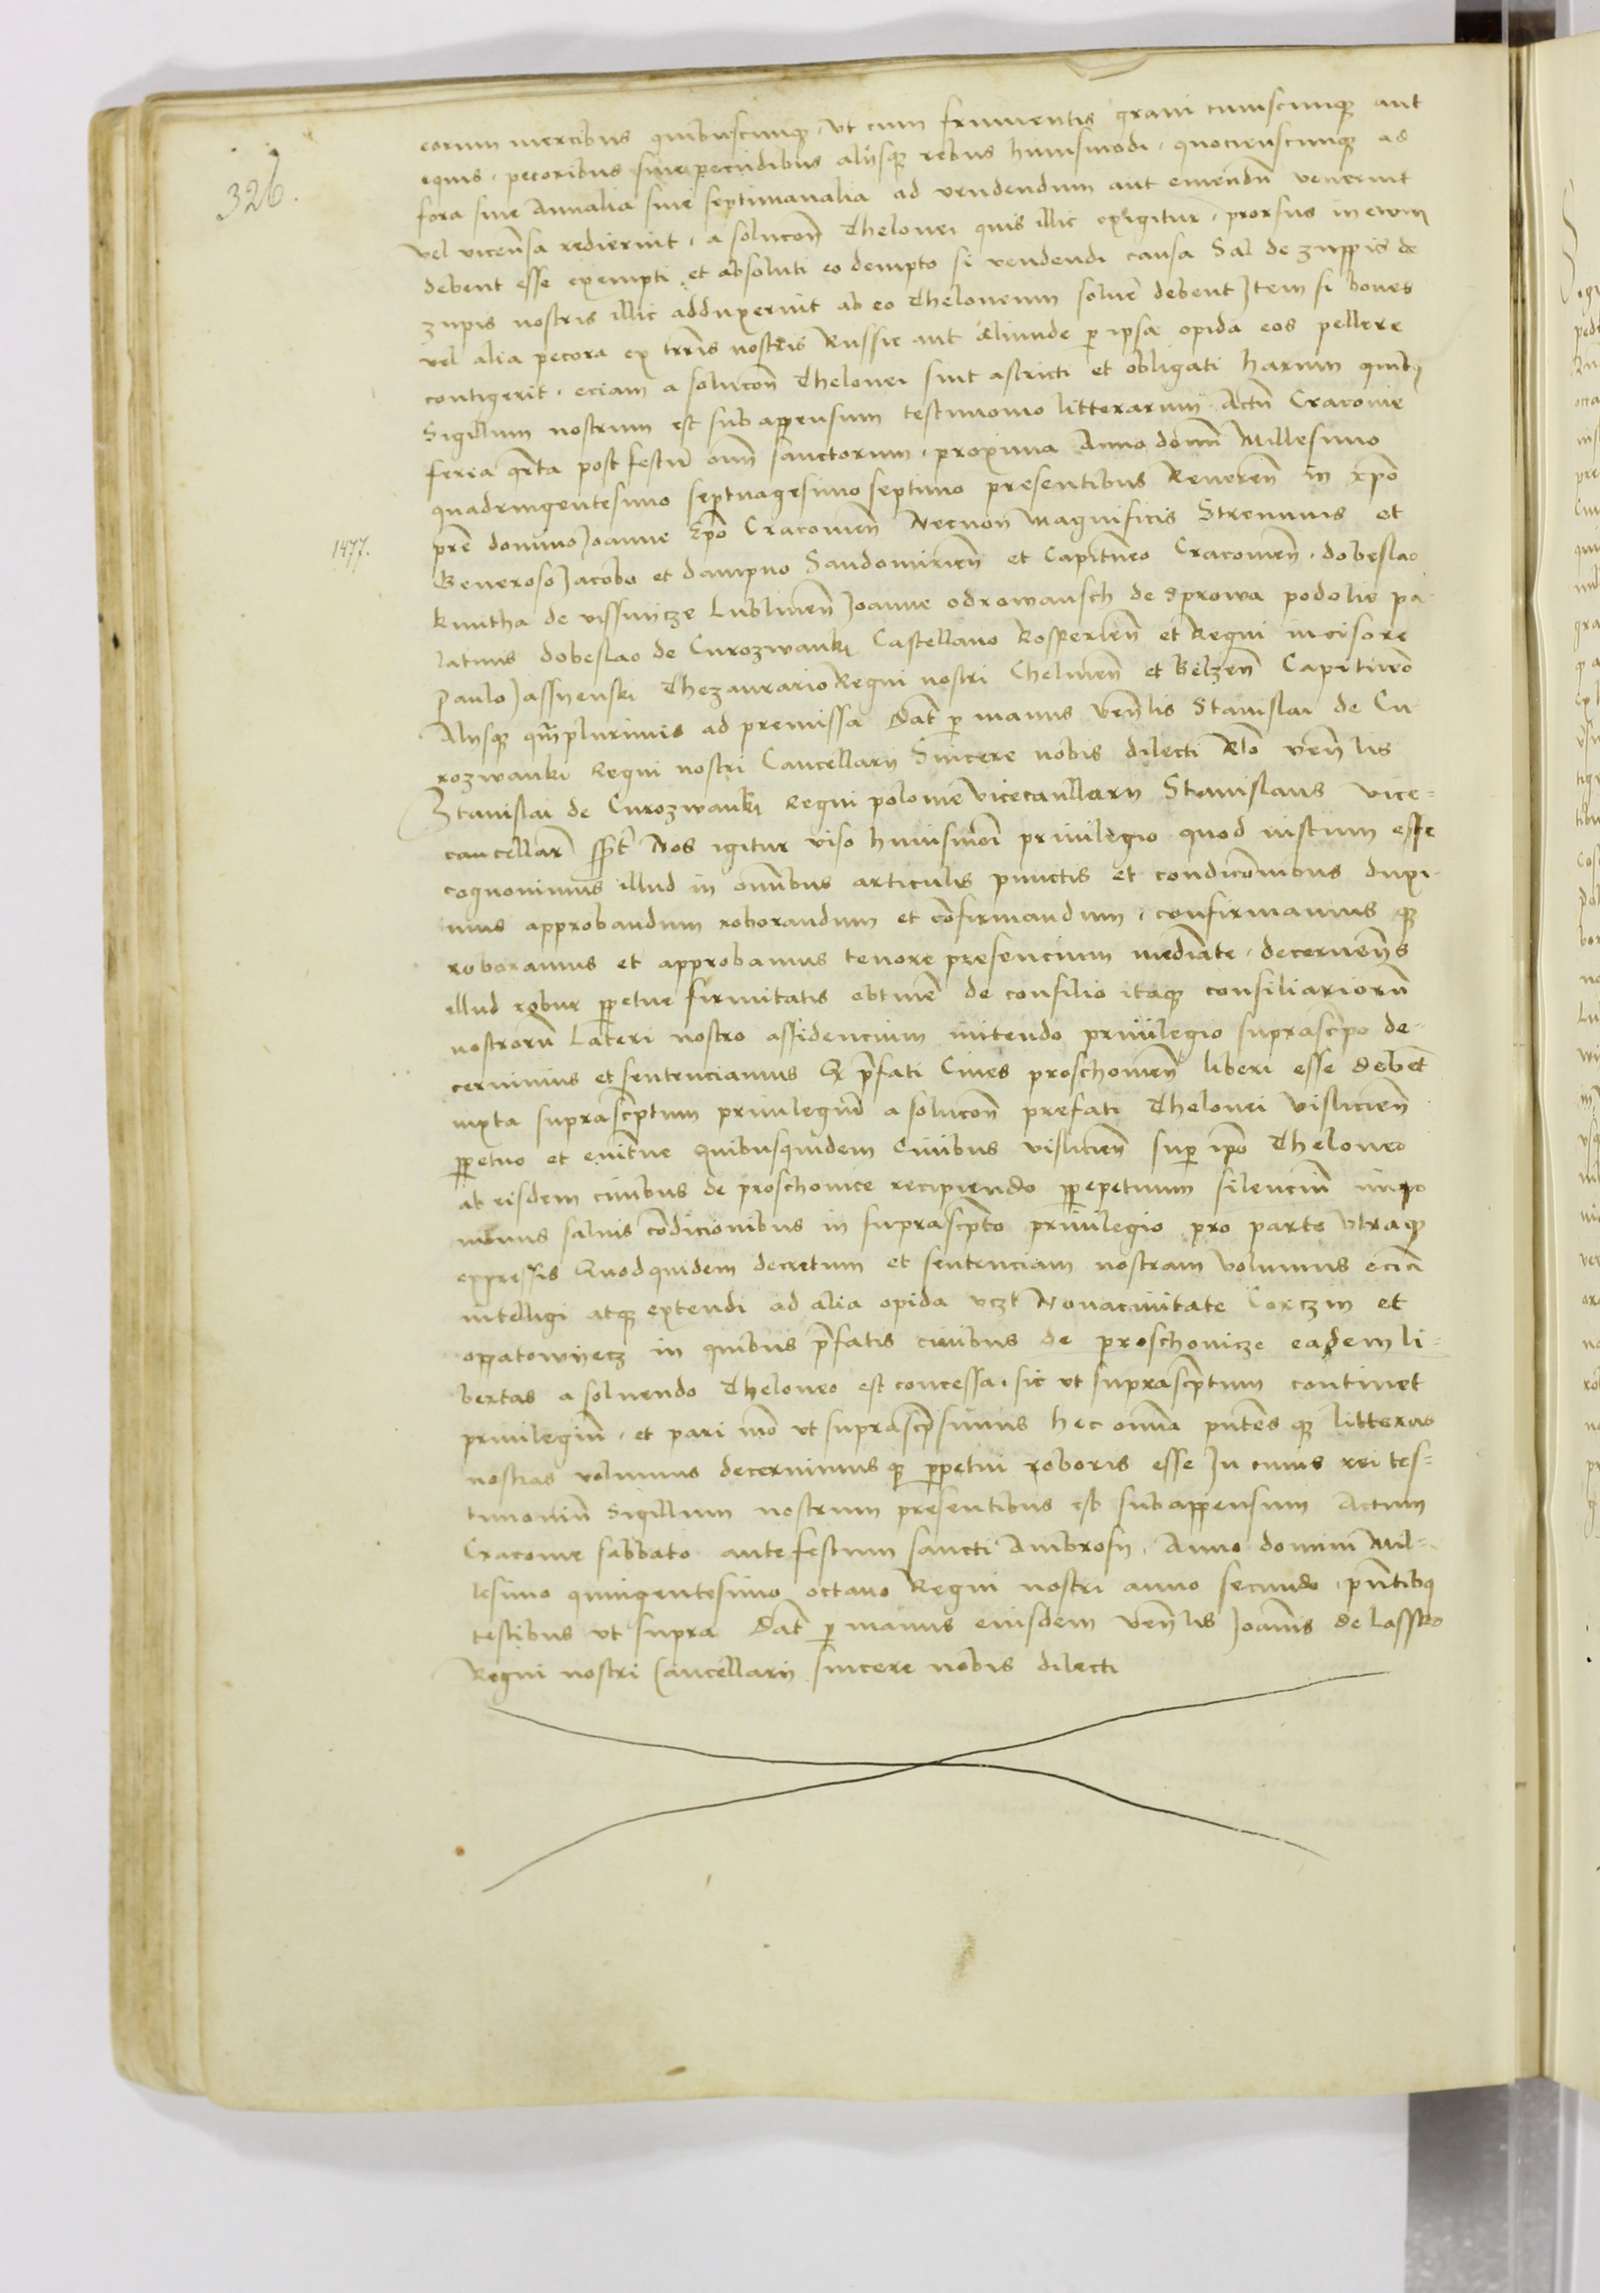 326.
eorum mercibus quibuscunq, ut cum frumentis grani cuiuscunq aut
equis, pecoribus sive pecudibus alijsq rebus huiusmodi, quocienscunq ad
fora sive Annalia sive septimanalia ad vendendum aut emendu venerint
vel vicensa redierint, a solucōn Thelonei quis illic exigitur, prorsus in ewm
debent esse exempti et absoluti eo dempto si vendendi causa Sal de zuppis de
zupis nostris illic adduxerint ab eo Theloneum solvē debent Item si boves
vel alia pecora ex terris nostris Russie aut aliunde p ipsa opida eos pellere
contigerit, eciam a solucōn Thelonei sint astricti et obligati harum quibq
Sigillum nostrum est subappensum testimonio litterarum Actū Cracovie
feria qrta post festū oīm sanctorum, proxima Anno domī Millesimo
quadringentesimo septuagesimo septimo presentibus Reverēn in xpō
1477.
prē domino Joanne Epō Cracovieñ Necnon Magnificis Strennuis et
Generoso Jacobo et dampno Sandomirieñ et Capitneo Cracovieñ, dobeslao
kmitha de vissnicze Lublineñ Joanne odrowansch de Sprowa podolie pa-
latinis dobeslao de Curozwanki Castellano Rosperieñ et Regni incisore
Paulo Jassyenski Thezaurario Regni nostri Chelmeñ et Belzeñ Capitneo
Alijsq qmplurimis ad premissa Dat p manus veñlis Stanislai de Cu-
rozwanki Regni nostri Cancellarij Sincere nobis dilecti Rlo veñlis
Stanislai de Curozwanki Regni polonie vicecancellarij Stanislaus vice-
cancellarī sspt Nos igitur viso huiusmōi privilegio quod iustum esse
cognovimus illud in omībus articulis punctis et condicōnibus duxi-
mus approbandum roborandum et cōfirmandum, confirmamus q
roboramus et approbamus tenore presencium mediante, decernens
illud robur ppetue firmitatis obtinē de consilio itaq consiliariorū
nostrorū Lateri nostro assidencium nitendo privilegio suprascpo de-
cernimus et sentenciamus Q pfati Cives proschovieñ liberi esse debēt
iuxta suprascptum privilegiū a solucōn prefati Thelonei Vislicieñ
ppetuo et evitne Quibusquidem Civibus vislicieñ sup ipō Theloneo
ab eisdem civibus de proschovice recipiendo ppepetuum silenciū impo
nimus salvis cōdicionibus in suprascpto privilegio pro parte utraq
expressis Quodquidem decretum et sentenciam nostram volumus eciā
intelligi atq extendi ad alia opida vczt Novacivitate Corczin et
oppatowyecz in quibus pfatis civibus de proschovicze eadem li-
bertas a solvendo Theloneo est concessa, sic ut suprascptum continet
privilegiū, et pari mō ut suprascpsimus hec omīa pñtes q litteras
nostras volumus decernimus q ppetui roboris esse In cuius rei tes-
timoniū Sigillum nostrum presentibus est subappensum Actum
Cracovie sabbato ante festum sancti Ambrosij, Anno domini Mil-
lesimo quingentesimo octavo Regni nostri anno secundo, pñtibq
testibus ut supra Dat p manus eiusdem veñlis Joannis de Lassko
Regni nostri Cancellarij sincere nobis dilecti